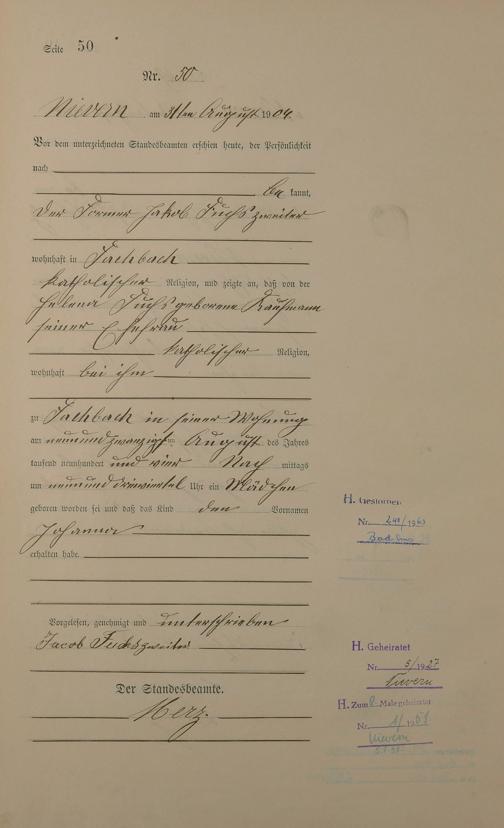 Seite 50
Nr. 50
Nievern am 31ten August 1904.
Vor dem unterzeichneten Standesbeamten erschien heute, der Persönlichkeit
nach
be kannt,
der Former Jakob Fuchs zweiter
wohnhaft in Fachbach
katholischer Religion, und zeigte an, daß von der
Helena Fuchs geborene Kaufmann
seiner Ehefrau
katholischer Religion,
wohnhaft bei ihm
zu Fachbach in seiner Wohnung
am neunundzwanzigsten August des Jahres
tausend neunhundert und vier Nach mittags
um neun und dreiviertel Uhr ein Mädchen
geboren worden sei und daß das Kind den Vornamen
Johanna
erhalten habe.
Vorgelesen, genehmigt und unterschrieben
Jacob Fuchs zweiter
Der Standesbeamte.
Merz.
H. Gestorben
Nr. /1963
Bad Ems
H. Geheiratet
Nr. 5/1927
Nievern
H. Zum 2. Male geheiratet
Nr. 1/1951
Nievern